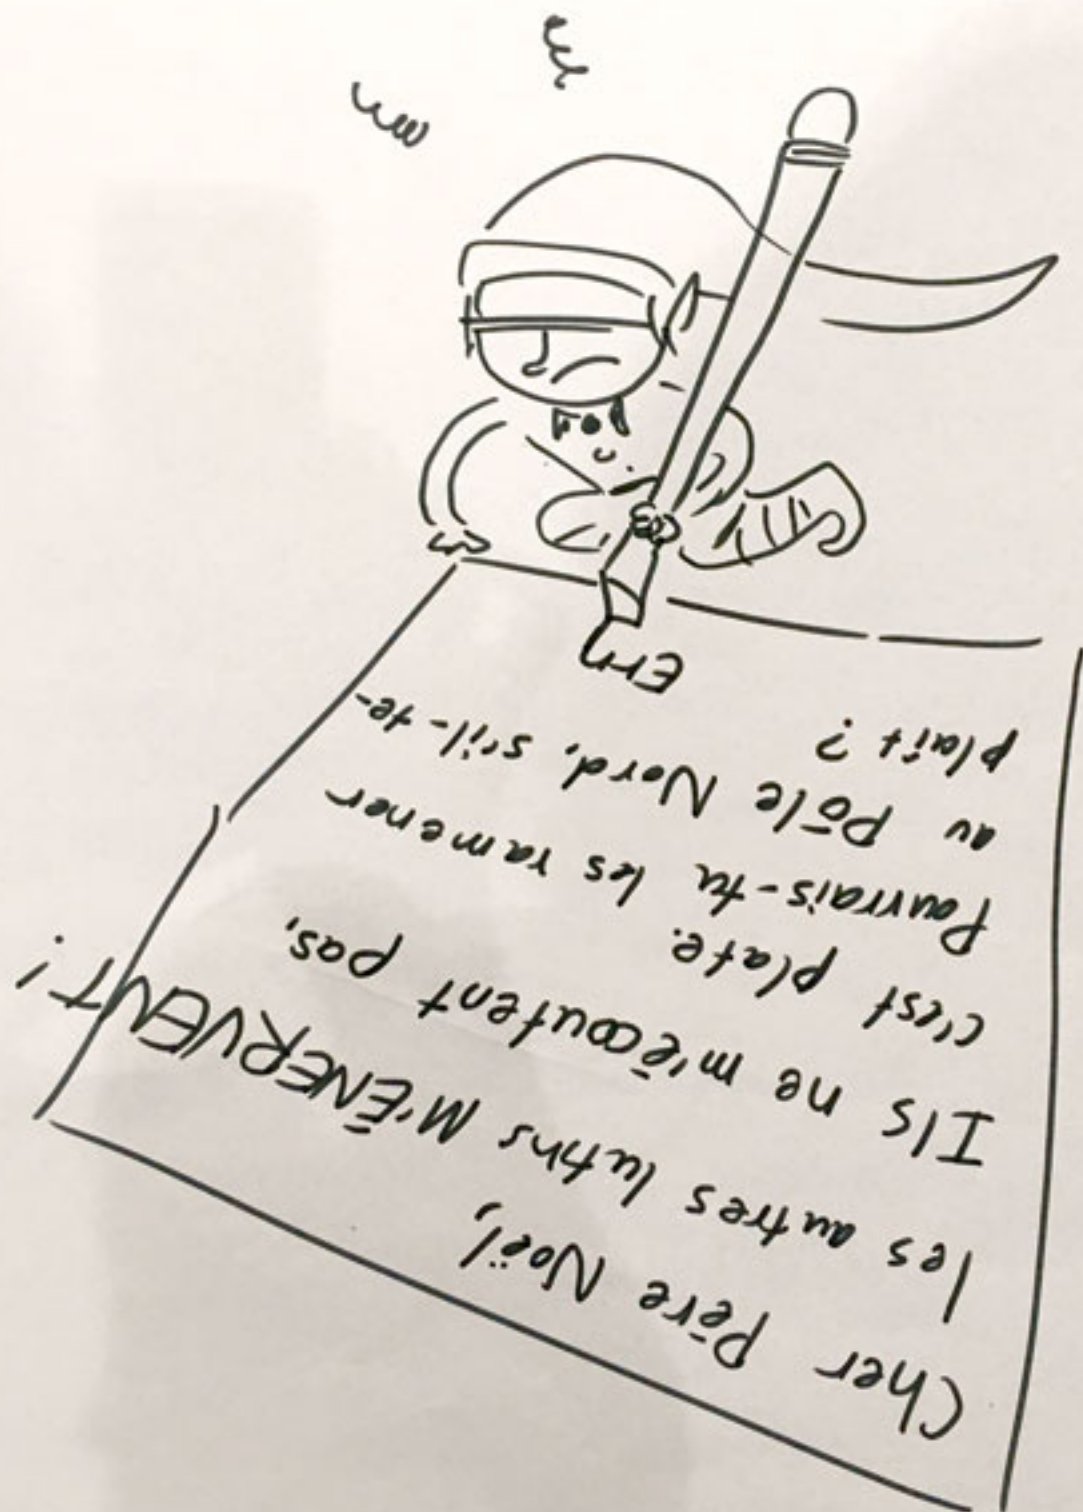 Cher Père Noël,
les autres lutins M'ÉNERVENT!
Ils ne m'écoutent pas,
c'est plate.
Pourrais-tu les ramener
au Pôle Nord, s'il-te-
plaît?
Ern